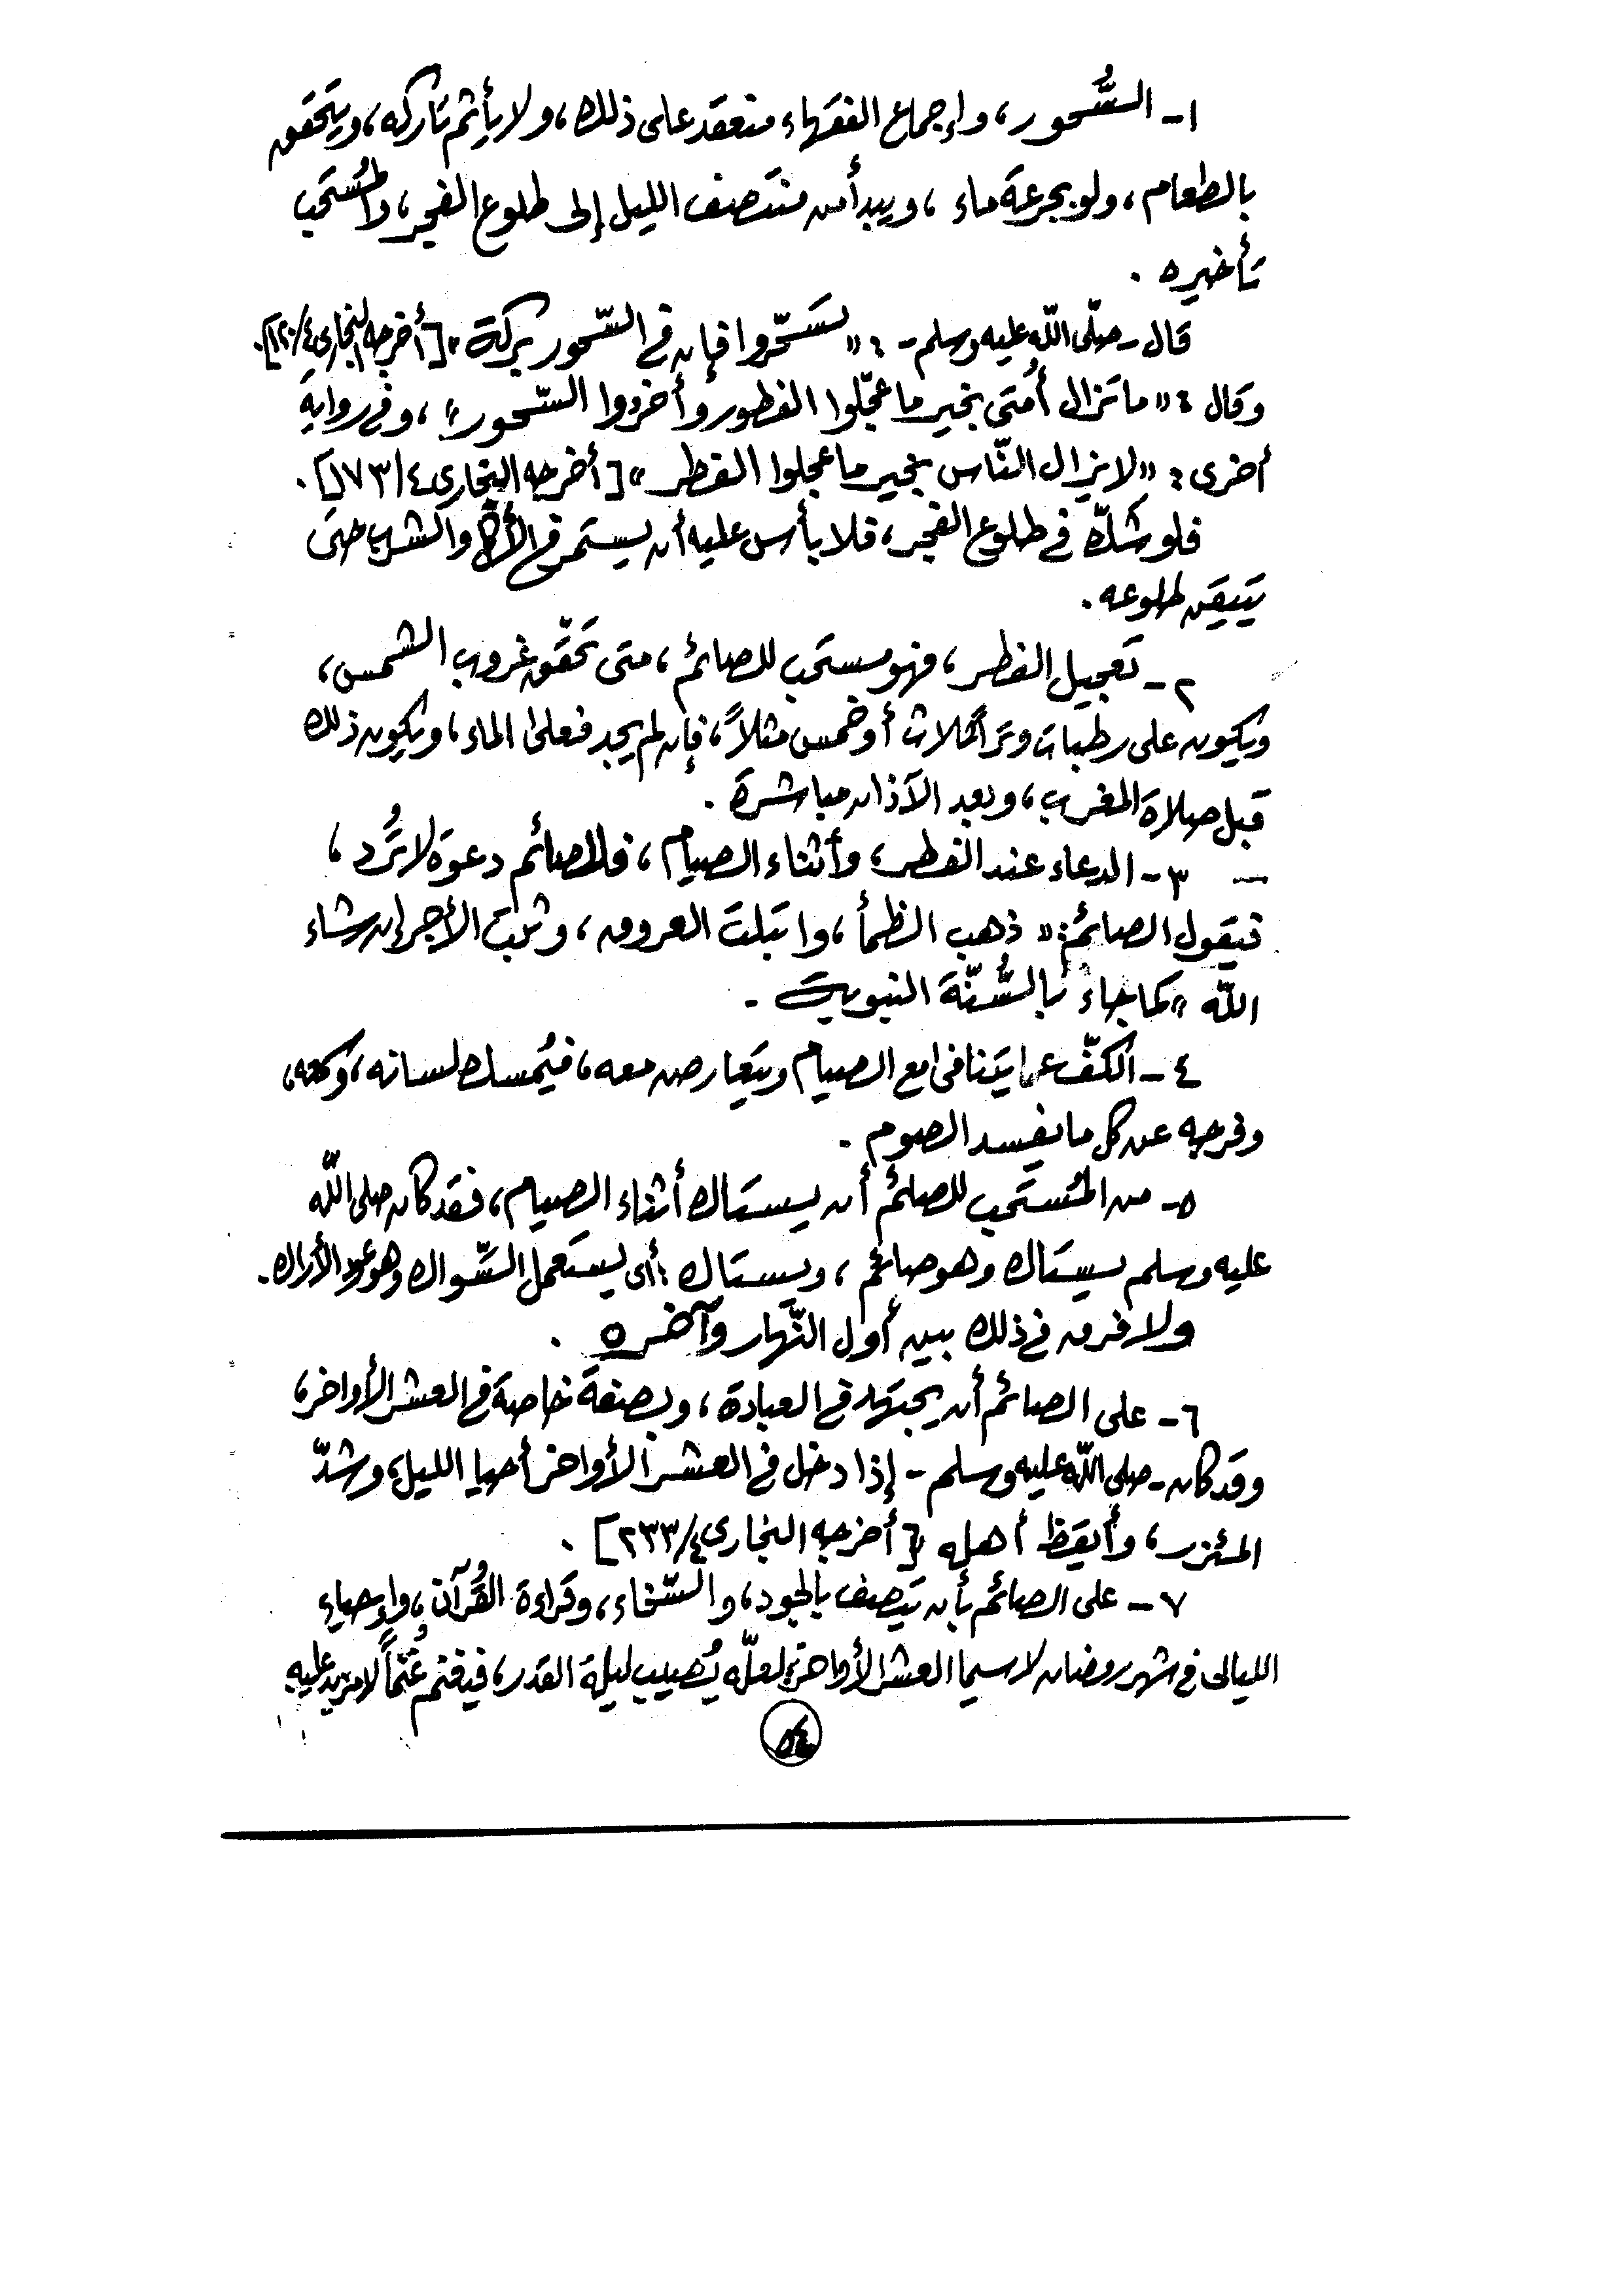 ١- السُّحور، وإجماع الفقهاء منعقد على ذلك، ولا يأثم تاركه، ويتحقق
بالطعام، ولو بجرعة ماء، ويبدأ من منتصف الليل إلى طلوع الفجر، والمُستحب
تأخيره.
قال - صلّى اللّه عليه وسلم - : «تسَحَّروا فإن في السّحور بركة» [أخرجه البخاري ٤/١٢٠].
وقال : «ما تزال أُمتى بخير ما عجّلوا الفطور وأخروا السّحور»، وفي رواية
أخرى : «لا يزال النّاس بخير ما عجلوا الفطر» [أخرجه البخارى ٤/١٧٣].
فلو شكّ في طلوع الفجر، فلا بأس عليه أن يستمر في الأكل والشرب حتى
يتيقن طلوعه.
٢- تعجيل الفطر، فهو مستحب للصائم، متى تحقّق غروب الشمس،
ويكون على رطبات وترًا ثلاث أو خمس مثلاً، فإن لم يجد فعلى الماء، ويكون ذلك
قبل صلاة المغرب، وبعد الآذان مباشرة.
٣- الدعاء عند الفطر، وأثناء الصيام، فللصائم دعوة لا تُرد،
فيقول الصائم: «ذهب الظمأ، وابتلت العروق، وثبت الأجر إن شاء
اللّه» كما جاء بالسُّنّة النبوية.
٤- الكفّ عما يتنافى مع الصيام ويتعارض معه، فيُمسك لسانه،
وفرجه عن كل ما يفسد الصوم.
٥- من المُستحب للصائم أن يستاك أثناء الصيام، فقد كان صلى اللّه
عليه وسلم يستاك وهو صائم، ويستاك: أى يستعمل السّواك وهو عود الأراك.
ولا فرق في ذلك بين أول النّهار وآخره.
٦- على الصائم أن يجتهد في العبادة، وبصفة خاصة في العشر الأواخر،
وقد كان - صلى اللّه عليه وسلم - إذا دخل في العشر الأواخر أحيا الليل، وشدّ
المئزر، وأيقظ أهله [أخرجه البخارى ٤/٢٣٣].
٧- على الصائم بأن يتصف بالجود، والسّخاء، وقراءة القُرآن، وإحياء
الليالى في شهر رمضان لا سيما العشر الأواخر، لعلّه يُصيب ليلة القدر، فيغنم غُنماً لا مزيد عليه
٥٤